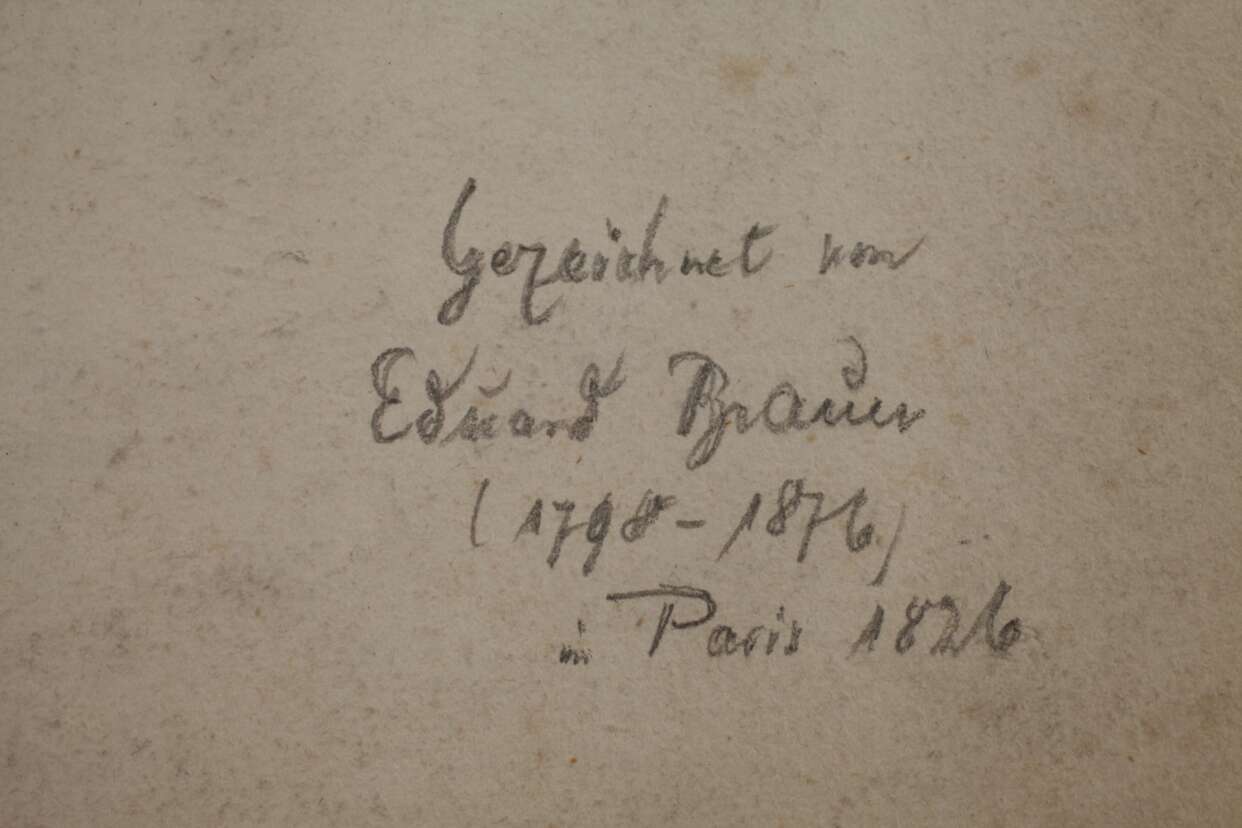 Gezeichnet von
Eduard Brauer
(1798-1876)
in Paris 1826